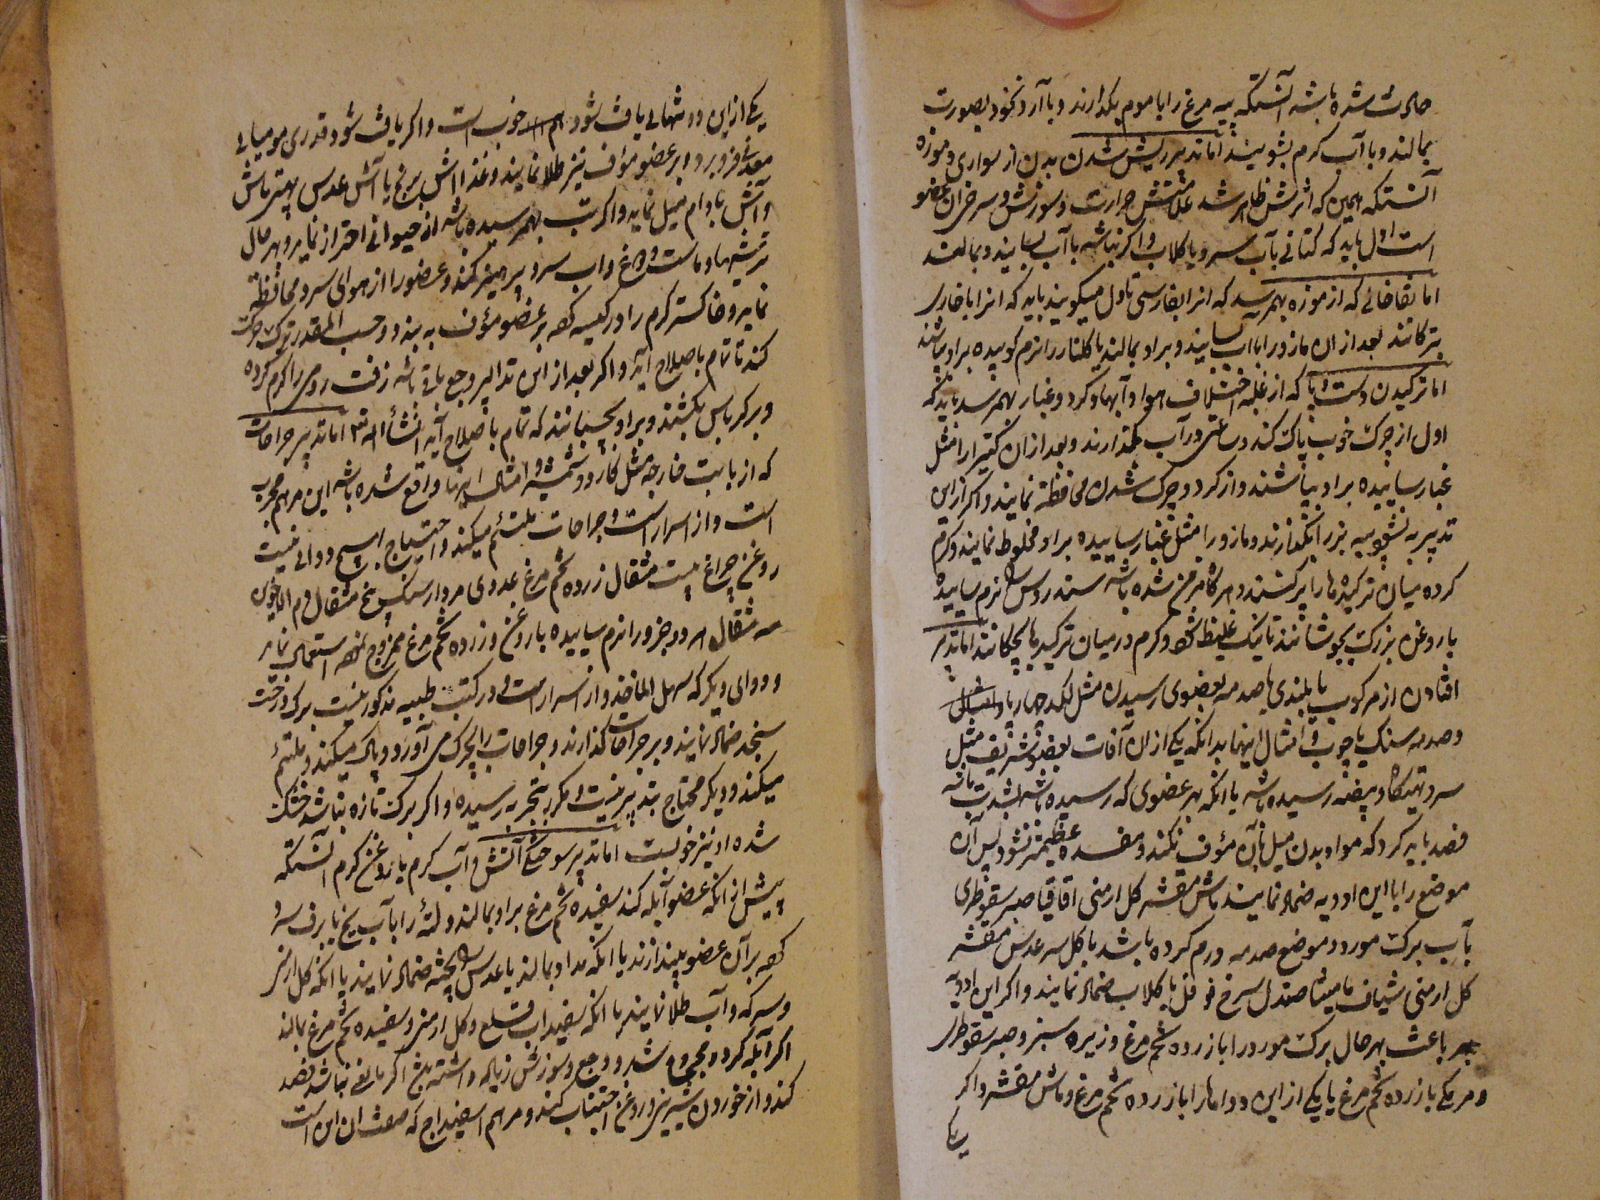 حادث شده باشد آنستکه پیه مرغ را با موم بکدازند و با آرد نخود بصورت
بمالند و با آب کرم بشویند اما تدبیر ریش شدن بدن از سواری و موزه
آنستکه همین که اثرش ظاهر شد علامتش حرارت و سوزش و سرخی آن عضو
است اول باید که کتانی بآب سرد یا کلاب و اکر نباشه با آب بسایند و بمالند
اما نقاخاتی که از موزه بهمرسد که انرا بفارسی تاول میکویند باید که انرا با خاری
بترکانند بعد از ان مازو را با آب بسایند و براو بمالند یا کلنار را نرم کوبیده براو بپاشند
اما ترکیدن دست و پا که از غلبه اختلاف هوا و آبها و کرد و غبار بهمرسد باید که
اول از چرک خوب پاک کند و ساعتی در آب بکذارند و بعد از ان کتیرا را مثل
غبار ساییده براو بپاشند و از کرد و چرک شدن محافظة نمایند و اکر از این
تدبیر به نشود پیه بز را بکدازند و مازو را مثل غبار ساییده براو مخلوط نمایند و کرم
کرده میان ترکیده ها را پر کنند و هر کاه مزمن شده باشه سندروس را نرم ساییده
با روغن بزرک بجوشانند تا نیک غلیظ شود و کرم در میان ترکیدها بچکانند اما تدبیر
افتادن از مرکوب یا بلندی یا صدمه بعضوی رسیدن مثل لکد چهارپا و
و صدمه سنک یا چوب و امثال اینها بدانکه یکی از ان آفات بعضو شریف مثل
سر و تهیکاه و بیضه رسیده باشه یا انکه بهر عضوی که رسیده باشه بشدت باشه
فصد باید کرد که مواد بدن میل بآن مؤف نکند و مفسده عظیمه نشود پس آن
موضع را با این ادویه ضماد نمایند ماش مقشر کل ارمنی اقاقیا صبر سقوطری
بآب برک مورد و موضع صدمه ورم کرده باشد با کل سر عدس مقشر
کل ارمنی شیاف مامیثا صندل سرخ فوفل با کلاب ضماد نمایند و اکر این ادویه
باعث بهر حال برک مورد را با زرده تخم مرغ و زیره سبز و صبر سقوطری
و هر یکی با زرده تخم مرغ یا یکی از این دواها را با زرده تخم مرغ و ماش مقشر و اکر
یکی
یکی از این دو تنهائی یافت شود هم خوب است و اکر یافت شود قدری مومیائی
معدنی فرو برد و بر عضو مؤف نیز طلا نمایند و غذا آش برنج یا آش عدس بهتر ماش
و آش بادام میل نماید و اکر تب بهمرسیده باشه از حیوانی احتراز نماید و بهر حال
ترشیها و ماست و دوغ و اب سرد پرهیز کند و عضو را از هوای سرد محافظة
نماید و خاکستر کرم را در کیسه کرده بر عضو مؤف به بندد و حسب المقدور ترک حرکت
کند تا تمام باصلاح آید و اکر بعد از این تدابیر وجع باقی باشه زفت رومی را کرم کرده
و بر کرباس بکشند و براو بچسبانند که تمام باصلاح آید انشأالله اما تدبیر جراحات
که از بابت خارجه مثل کارد و شمشیر و امثال اینها واقع شده باشه این مرهم مجرب
است و از اسرار است و جراحات ملتئم میکند و احتیاج بهیچ دوائی نیست
روغن چراغ بیست مثقال زرده تخم مرغ عددی مردارسنک پنج مثقال دم الاخوین
سه مثقال هر دو جزو را نرم ساییده با روغن و زرده تخم مرغ ممزوج نموده استعمال نماید
و دوای دیکر که سهل الماخذ و از اسرار است و در کتب طبیه مذکور نیست برک درخت
سنجد ضماد نمایند و بر جراحات کذارند و جراحات را بچرک می آورد و پاک میکند و ملتئم
میکند و دیکر محتاج بتدبیر نیست و مکرر بتجربه رسیده و اکر برک تازه نباشد خشک
شده او نیز خوبست اما تدبیر سوختکی آتش و آب کرم یا روغن کرم آنستکه
پیش از آنکه عضو آبله کند سفیده تخم مرغ براو بمالند و لتهٔ را بآب یخ یا برف سرد
کرده بر آن عضو بیندازند یا انکه مداد بمالند یا عدس پخته ضماد نمایند یا انکه کل ارمنی
و سرکه و آب طلا نمایند یا انکه سفیداب قلع و کل ارمنی و سفیده تخم مرغ بمالند
اکر آبله کرد و مجروح شد و وجع و سوزش زیاد داشته باشه اکر مانعی نباشد فصد
کند و از خوردن شیرینی و روغن اجتناب کند و مرهم اسفیداج که صفت ان این است